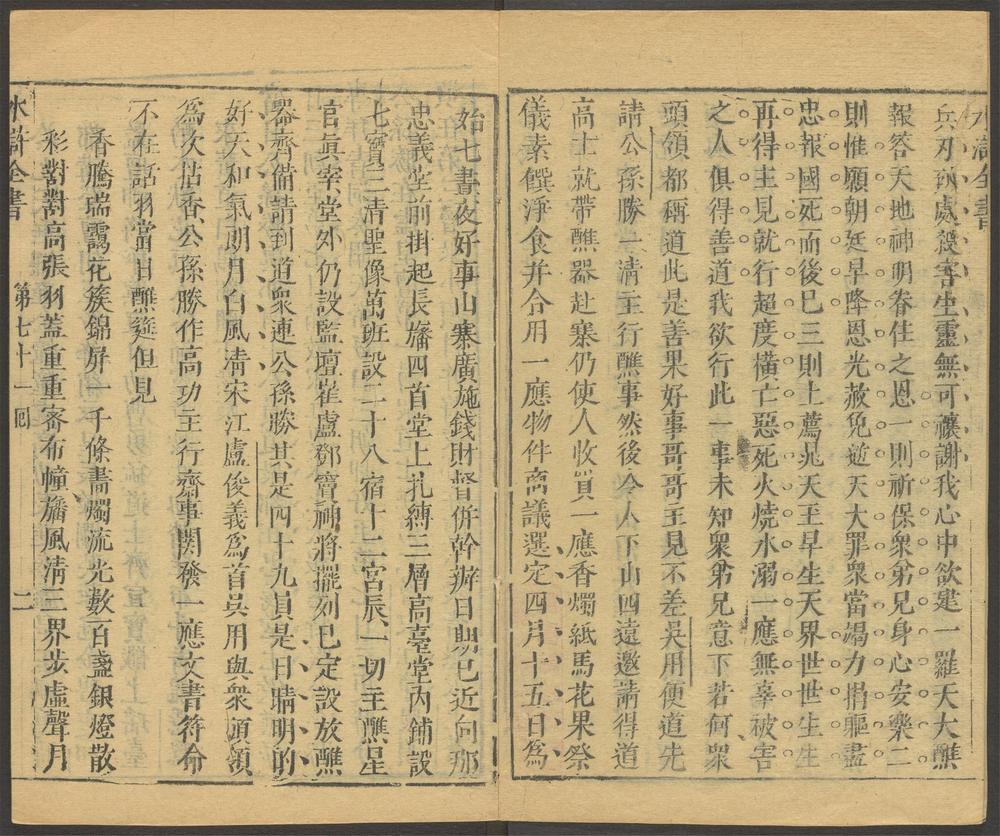 水滸全書
兵刃到處殺害生靈無可禳謝我心中欲建一羅天大醮
報答天地神明眷佑之恩一則祈保衆弟兄身心安樂二
則惟願朝廷早降恩光赦免逆天大罪衆當竭力捐軀盡
忠報國死而後已三則上薦晁天王早生天界世世生生
再得主見就行超度橫亡惡死火燒水溺一應無辜被害
之人俱得善道我欲行此一事未知衆弟兄意下若何衆
頭領都稱道此是善果好事哥哥主見不差吳用便道先
請公孫勝一清主行醮事然後令人下山四遠邀請得道
高士就帶醮器赴寨仍使人收買一應香燭紙馬花果祭
儀素饌淨食并合用一應物件商議選定四月十五日爲
始七晝夜好事山寨廣施錢財督併幹辦日期已近向那
忠義堂前掛起長旛四首堂上扎縛三層高臺堂內鋪設
七寶三清聖像萬班設二十八宿十二宮辰一切主醮星
官眞宰堂外仍設監壇崔盧鄧竇神將擺列已定設放醮
器齊備請到道衆連公孫勝其是四十九員是日晴明的
好天和氣朗月白風清宋江盧俊義爲首吳用與衆頭領
爲次拈香公孫勝作高功主行齋事関發一應文書符命
不在話羽當日醮筵但見
香騰瑞靄花簇錦屏一千條畵燭流光數百盞銀燈散
彩對對高張羽蓋重重密布幢旛風清三界步虛聲月
水滸全書 第七十一囘 二